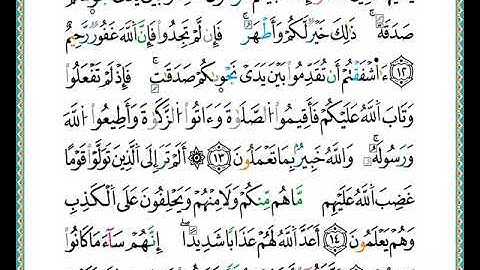 صَدَقَةٗۚ ذَٰلِكَ خَيۡرٞ لَّكُمۡ وَأَطۡهَرُۚ فَإِن لَّمۡ تَجِدُواْ فَإِنَّ ٱللَّهَ غَفُورٞ رَّحِيمٌ
١٢ ءَأَشۡفَقۡتُمۡ أَن تُقَدِّمُواْ بَيۡنَ يَدَيۡ نَجۡوَىٰكُمۡ صَدَقَٰتٖۚ فَإِذۡ لَمۡ تَفۡعَلُواْ
وَتَابَ ٱللَّهُ عَلَيۡكُمۡ فَأَقِيمُواْ ٱلصَّلَوٰةَ وَءَاتُواْ ٱلزَّكَوٰةَ وَأَطِيعُواْ ٱللَّهَ
وَرَسُولَهُۥۚ وَٱللَّهُ خَبِيرُۢ بِمَا تَعۡمَلُونَ ١٣ ۞ أَلَمۡ تَرَ إِلَى ٱلَّذِينَ تَوَلَّوۡاْ قَوۡمًا
غَضِبَ ٱللَّهُ عَلَيۡهِم مَّا هُم مِّنكُمۡ وَلَا مِنۡهُمۡ وَيَحۡلِفُونَ عَلَى ٱلۡكَذِبِ
وَهُمۡ يَعۡلَمُونَ ١٤ أَعَدَّ ٱللَّهُ لَهُمۡ عَذَابٗا شَدِيدًاۖ إِنَّهُمۡ سَآءَ مَا كَانُواْ